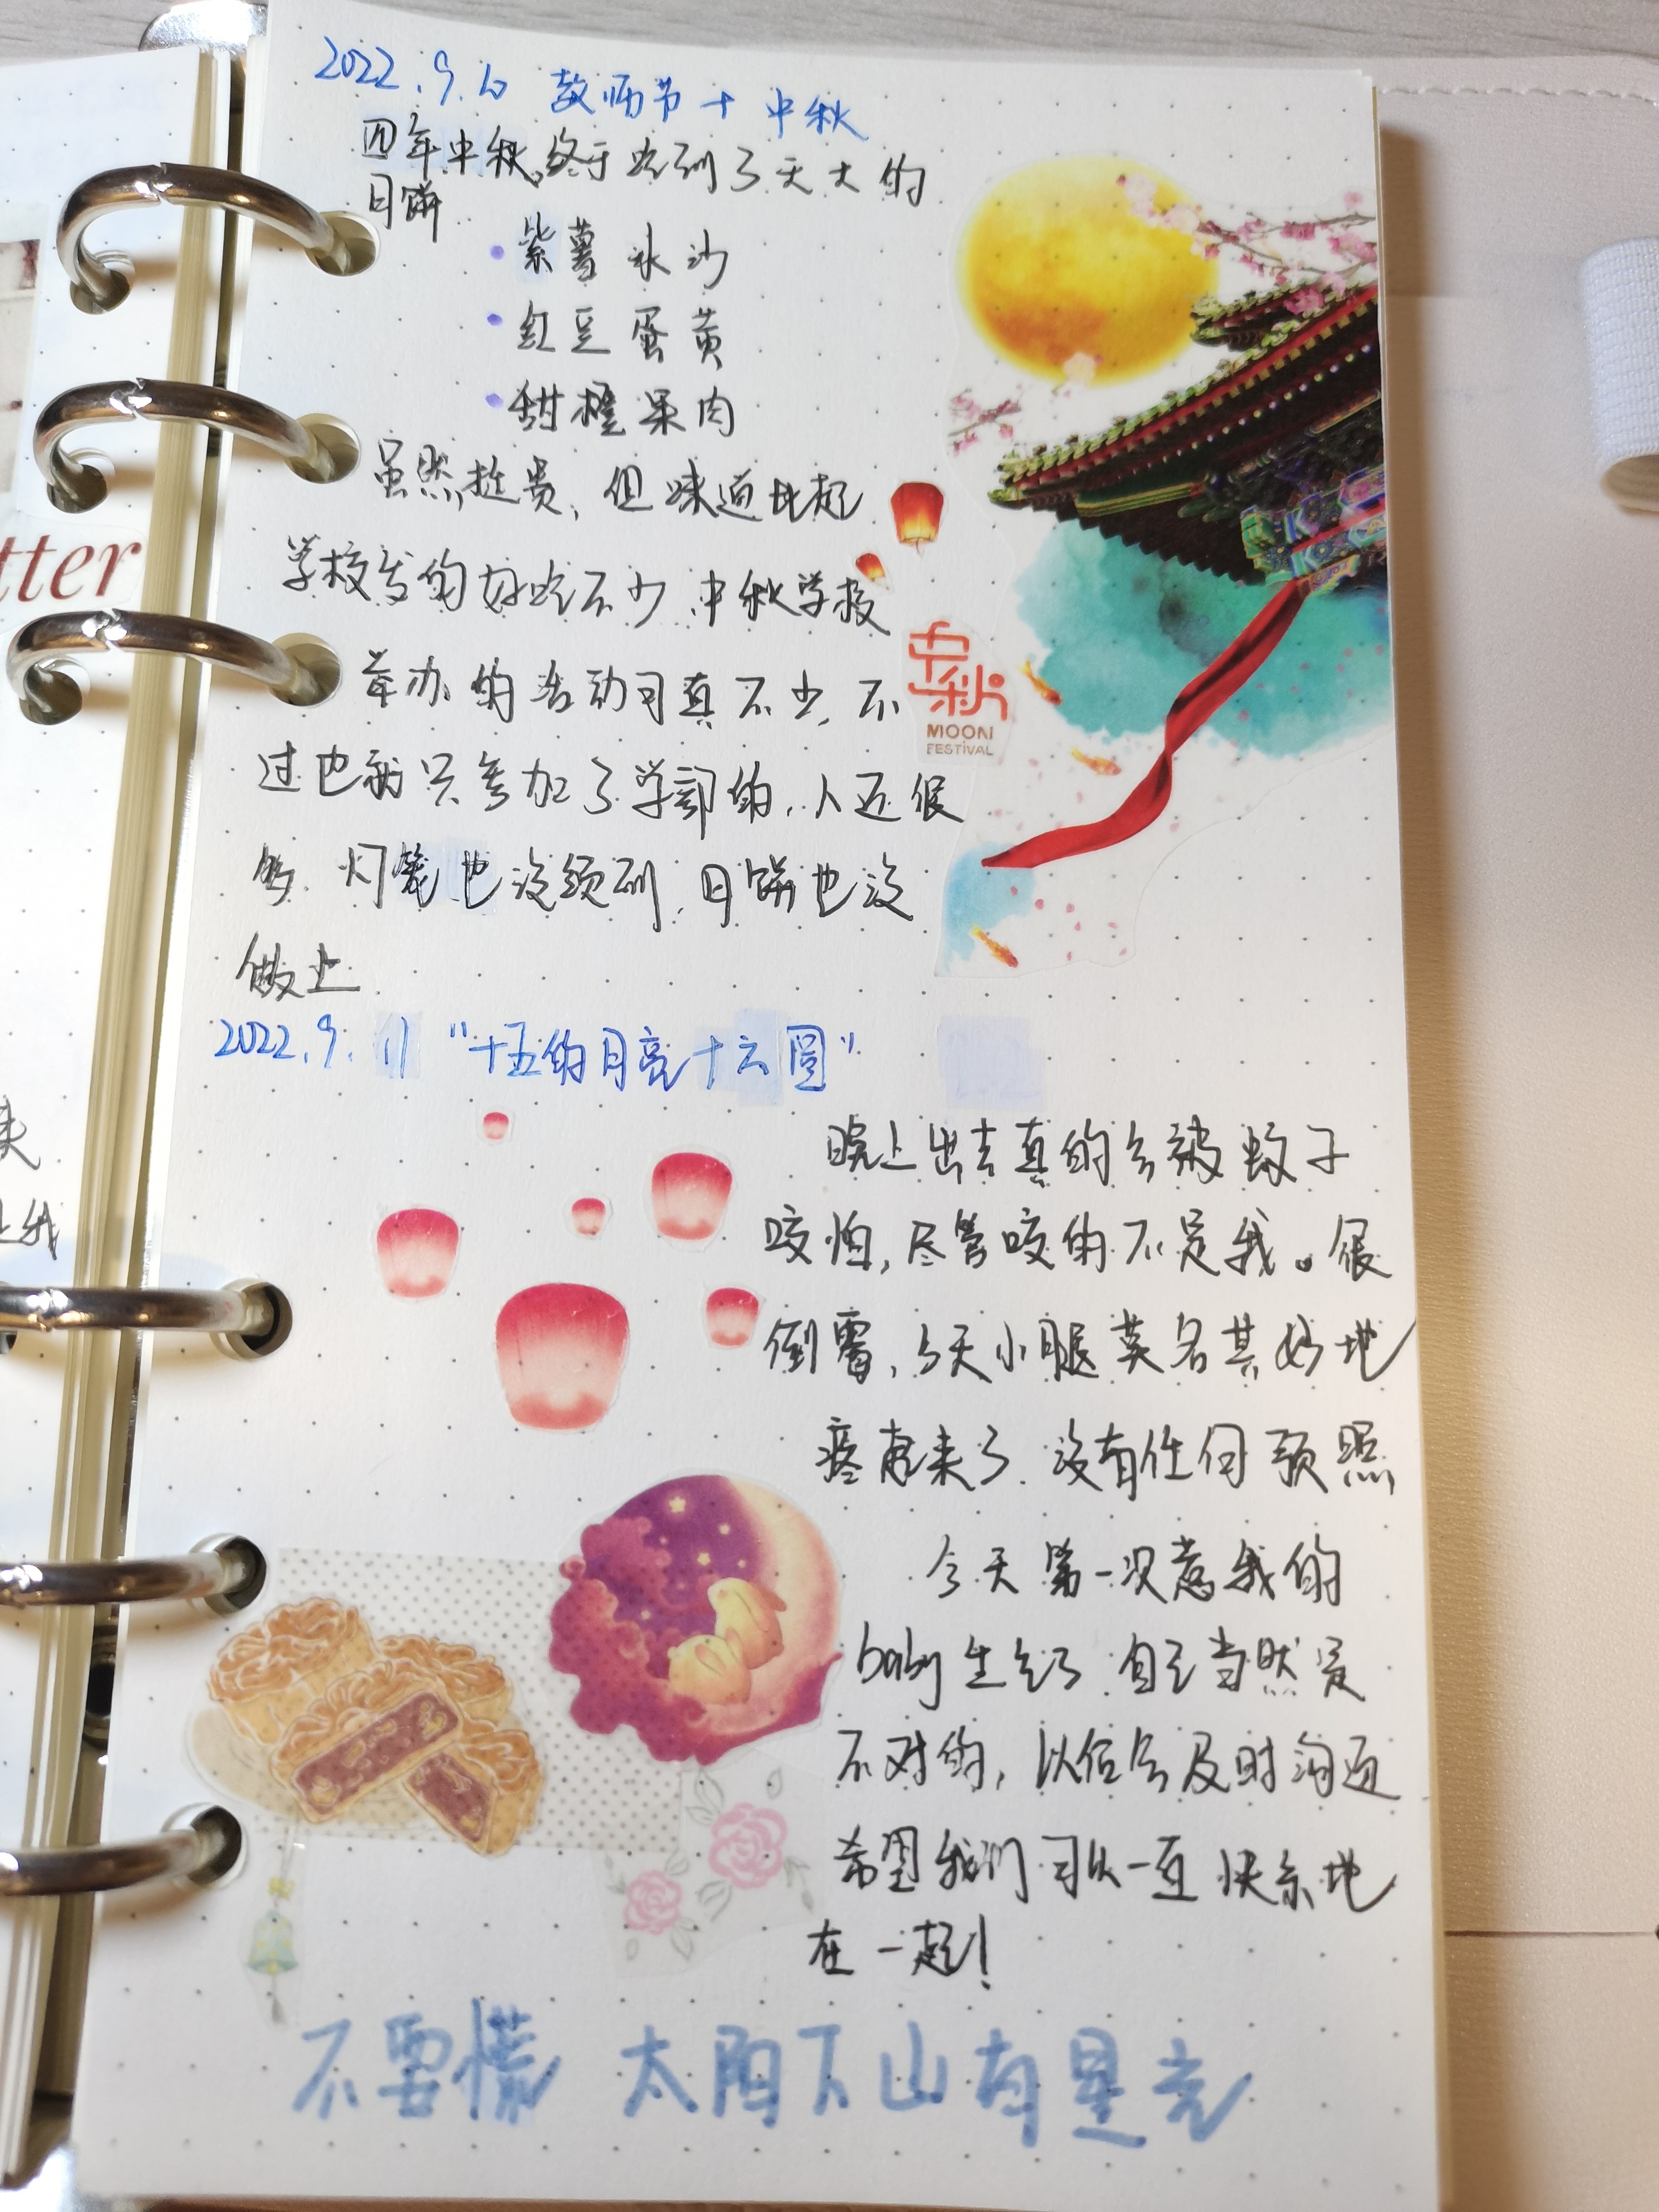 2022.9.10 教师节+中秋
四年中秋,终于吃到了天大的
月饼
紫薯冰沙
红豆蛋黄
甜橙果肉
虽然挺贵,但味道比起
学校发的好吃不少.中秋学校
举办的活动可真不少,不
过也就只参加了学部的,人还很
多.灯笼也没领到,月饼也没
做上
中秋
MOON
FESTIVAL
2022.9.11 "十五的月亮十六圆"
晚上出去真的会被蚊子
咬怕,尽管咬的不是我。很
倒霉,今天小腿莫名其妙地
疼起来了.没有任何预照
今天第一次惹我的
baby生气了.自己当然是
不对的,以后会及时沟通
希望我们可以一直快乐地
在一起!
不要慌 太阳下山有星光
tter